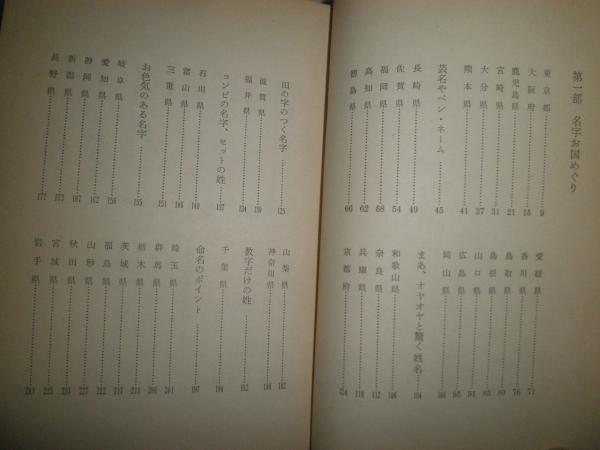 第一部 名字お国めぐり
東京都……9
大阪府……15
鹿児島県……21
宮崎県……31
大分県……37
熊本県……41
芸名やペン・ネーム……45
長崎県……49
佐賀県……54
福岡県……58
高知県……62
徳島県……66
愛媛県……71
香川県……76
鳥取県……80
島根県……85
山口県……91
広島県……95
岡山県……98
まあ、オヤオヤと驚く姓名……104
和歌山県……106
奈良県……112
兵庫県……118
京都府……124
田の字のつく名字……125
滋賀県……130
福井県……134
コンビの名字、セットの姓……137
石川県……140
富山県……146
三重県……151
お色気のある名字……155
岐阜県……156
愛知県……162
静岡県……167
新潟県……173
長野県……177
山梨県……182
神奈川県……188
数字だけの姓……192
千葉県……194
命名のポイント……197
埼玉県……201
群馬県……206
栃木県……211
茨城県……217
福島県……222
山形県……227
秋田県……231
宮城県……235
岩手県……241